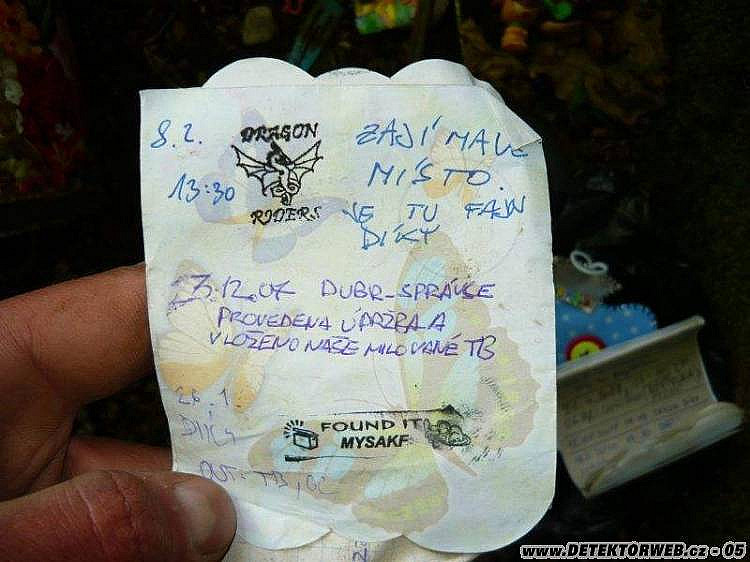 8.2.
13:30
DRAGON
RIDERS
ZAJÍMAVÉ
MÍSTO.
JE TU FAJN
DÍKY
23.12.07 DUBR-SPRÁVCE
PROVEDENA ÚDRŽBA A
VLOŽENO NAŠE MILOVANÉ TB
26.1.
DÍKY
FOUND IT
MYSAKF
OUT: TB,
www.DETEKTORWEB.cz - 05